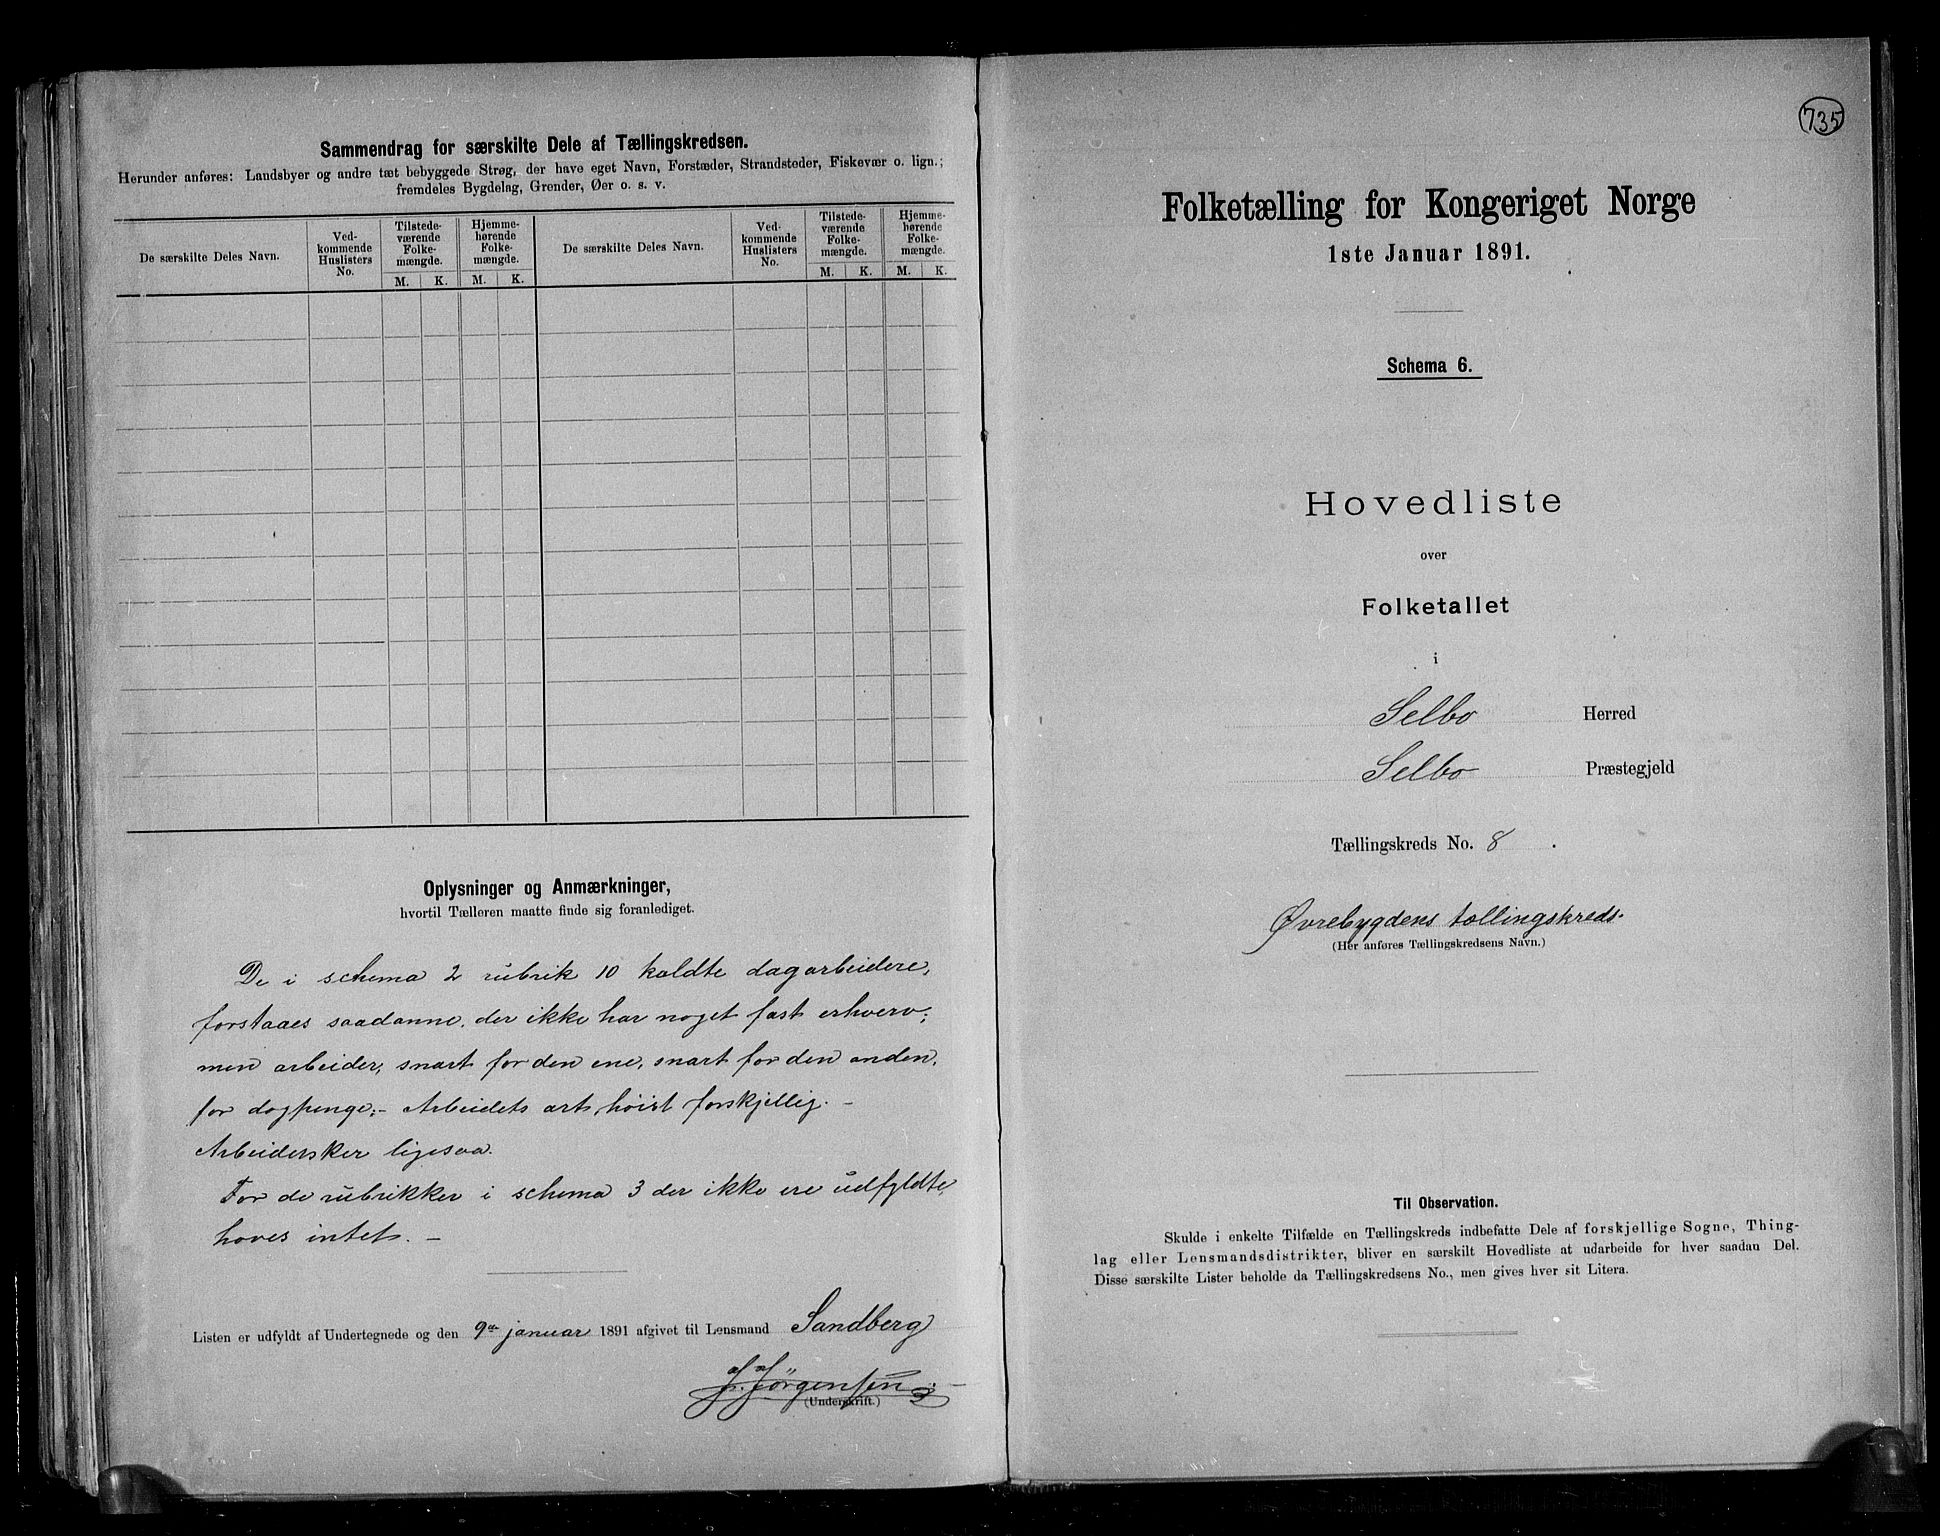 Sammendrag for særskilte Dele af Tællingskredsen.
Herunder anføres: Landsbyer og andre tæt bebyggede Strøg, der have eget Navn, Forstæder, Strandsteder, Fiskevær o. lign.;
fremdeles Bygdelag, Grender, Øer o. s. v.
De særskilte Deles Navn.
Ved-
kommende
Huslisters
No.
Tilstede-
værende
Folke-
mængde.
M. K.
Hjemme-
hørende
Folke-
mængde.
M. K.
De særskilte Deles Navn.
Ved-
kommende
Huslisters
No.
Tilstede-
værende
Folke-
mængde.
M. K.
Hjemme-
hørende
Folke-
mængde.
M. K.
Oplysninger og Anmærkninger,
hvortil Tælleren maatte finde sig foranlediget.
De i schema 2 rubrik 10 kaldte dagarbeidere,
forstaaes saadanne, der ikke har noget fast erhverv;
men arbeider, snart for den ene, snart for den anden,
for dagpenge;- Arbeidets art, høist forskjellig. -
Arbeidersker ligesaa.
For de rubrikker i schema 3 der ikke ere udfyldte,
haves intet. -
Listen er udfyldt af Undertegnede og den 9de januar 1891 afgivet til Lensmand Sandberg
Jørgensen
(Underskrift.)
735
Folketælling for Kongeriget Norge
1ste Januar 1891.
Schema 6.
Hovedliste
over
Folketallet
i
Selbo Herred
Selbo Præstegjeld
Tællingskreds No. 8.
Øvrebygdens tællingskreds.
(Her anføres Tællingskredsens Navn.)
Til Observation.
Skulde i enkelte Tilfælde en Tællingskreds indbefatte Dele af forskjellige Sogne, Thing-
lag eller Lensmandsdistrikter, bliver en særskilt Hovedliste at udarbeide for hver saadan Del.
Disse særskilte Lister beholde da Tællingskredsens No., men gives hver sit Litera.